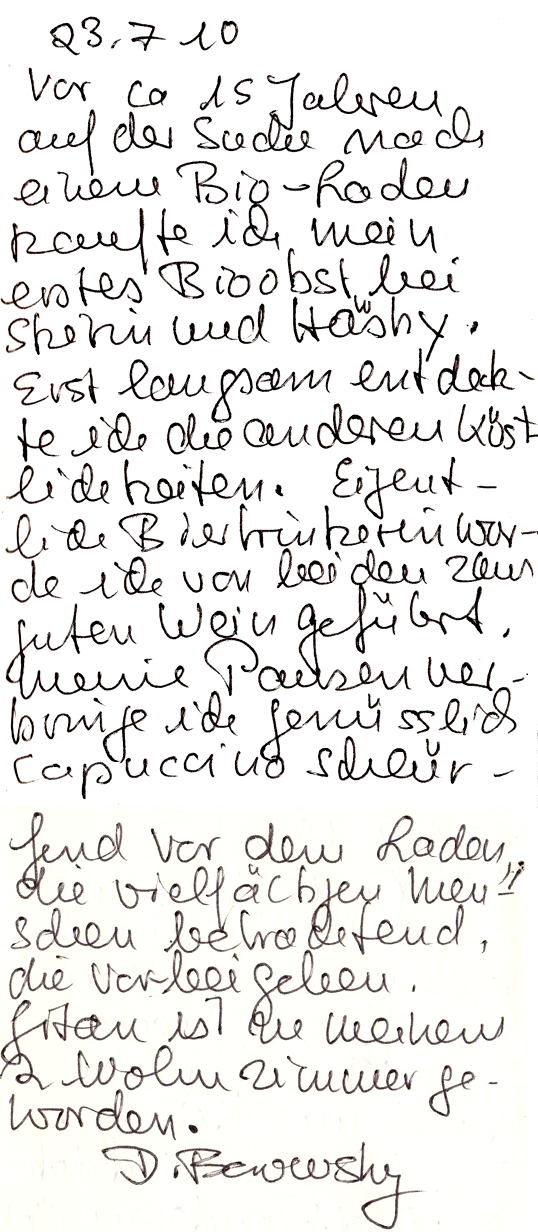 23.7 10
Vor ca 15 Jahren
auf der Suche nach
einem Bio-Laden
kaufte ich mein
erstes Bioobst bei
und
Erst langsam entdeck-
te ich die anderen Köst
lichkeiten. Eigent-
liche Biertrinkerin wur-
de ich von beiden zum
guten Wein geführt.
Meine Pausen ver-
bringe ich genüsslich
Capuccino schlür-
fend vor dem Laden,
die vielfächjen Men-
schen betrachtend,
die vorbeigehen.
ist zu meinem
2 Wohnzimmer ge-
worden.
D.